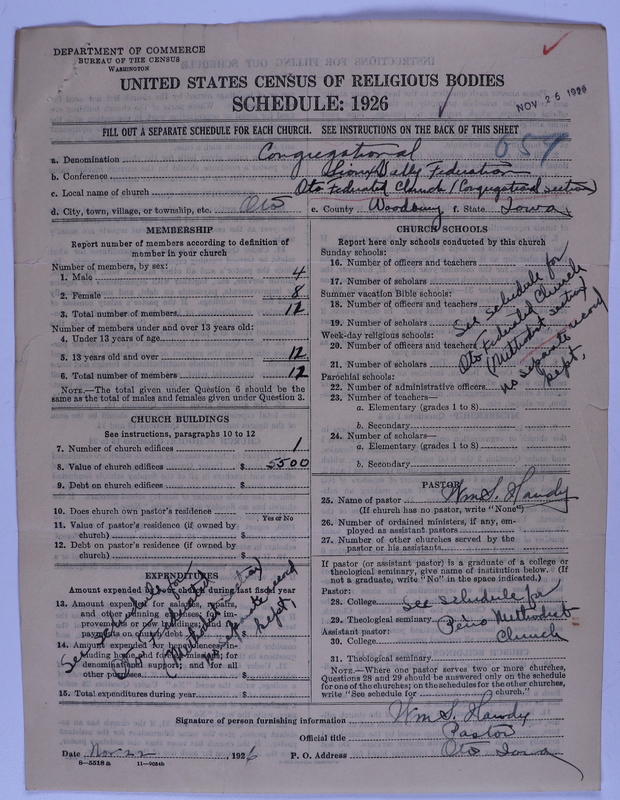 DEPARTMENT OF COMMERCE
BUREAU OF THE CENSUS
WASHINGTON
UNITED STATES CENSUS OF RELIGIOUS BODIES
SCHEDULE: 1926
NOV 26 1926
FILL OUT A SEPARATE SCHEDULE FOR EACH CHURCH. SEE INSTRUCTIONS ON THE BACK OF THIS SHEET
a. Denomination Congregational 657
b. Conference Sioux Vally Federation
c. Local name of church Oto Federated Church (Congregational section)
d. City, town, village, or township, etc. Oto e. County Woodbury f. State Iowa
MEMBERSHIP
Report number of members according to definition of
member in your church
Number of members, by sex:
1. Male 4
2. Female 8
3. Total number of members 12
Number of members under and over 13 years old:
4. Under 13 years of age
5. 13 years old and over 12
6. Total number of members 12
NOTE.—The total given under Question 6 should be the
same as the total of males and females given under Question 3.
CHURCH BUILDINGS
See instructions, paragraphs 10 to 12
7. Number of church edifices 1
8. Value of church edifices $ 5500
9. Debt on church edifices $
10. Does church own pastor's residence
Yes or No
11. Value of pastor's residence (if owned by
church) $
12. Debt on pastor's residence (if owned by
church) $
EXPENDITURES
Amount expended by church during last fiscal year
13. Amount expended for salaries, repairs,
and other running expenses; for im-
provements or new buildings; and for
payments on church debt $
14. Amount expended for benevolences, in-
cluding home and foreign missions; for
denominational support; and for all
other purposes $
15. Total expenditures during year $
See schedule for
Oto Federated
(Methodist section
no separate record
kept,
CHURCH SCHOOLS
Report here only schools conducted by this church
Sunday schools:
16. Number of officers and teachers
17. Number of scholars
Summer vacation Bible schools:
18. Number of officers and teachers
19. Number of scholars
Week-day religious schools:
20. Number of officers and teachers
21. Number of scholars
Parochial schools:
22. Number of administrative officers
23. Number of teachers—
a. Elementary (grades 1 to 8)
b. Secondary
24. Number of scholars—
a. Elementary (grades 1 to 8)
b. Secondary
See schedule for
Oto Federated Church
(Methodist section
no separate record
kept,
PASTOR
25. Name of pastor Wm S. Handy
(If church has no pastor, write "None")
26. Number of ordained ministers, if any, em-
ployed as assistant pastors
27. Number of other churches served by the
pastor or his assistants
If pastor (or assistant pastor) is a graduate of a college or
theological seminary, give name of institution below. (If
not a graduate, write "No" in the space indicated.)
Pastor:
28. College See schedule for
29. Theological seminary Methodist
Assistant pastor: Church
30. College
31. Theological seminary
NOTE.—Where one pastor serves two or more churches,
Questions 28 and 29 should be answered only on the schedule
for one of the churches; on the schedules for the other churches,
write "See schedule for church."
Signature of person furnishing information Wm S. Handy
Official title Pastor
Date Nov 22, 1926 P. O. Address Oto Iowa
8—5518a 11—9054b